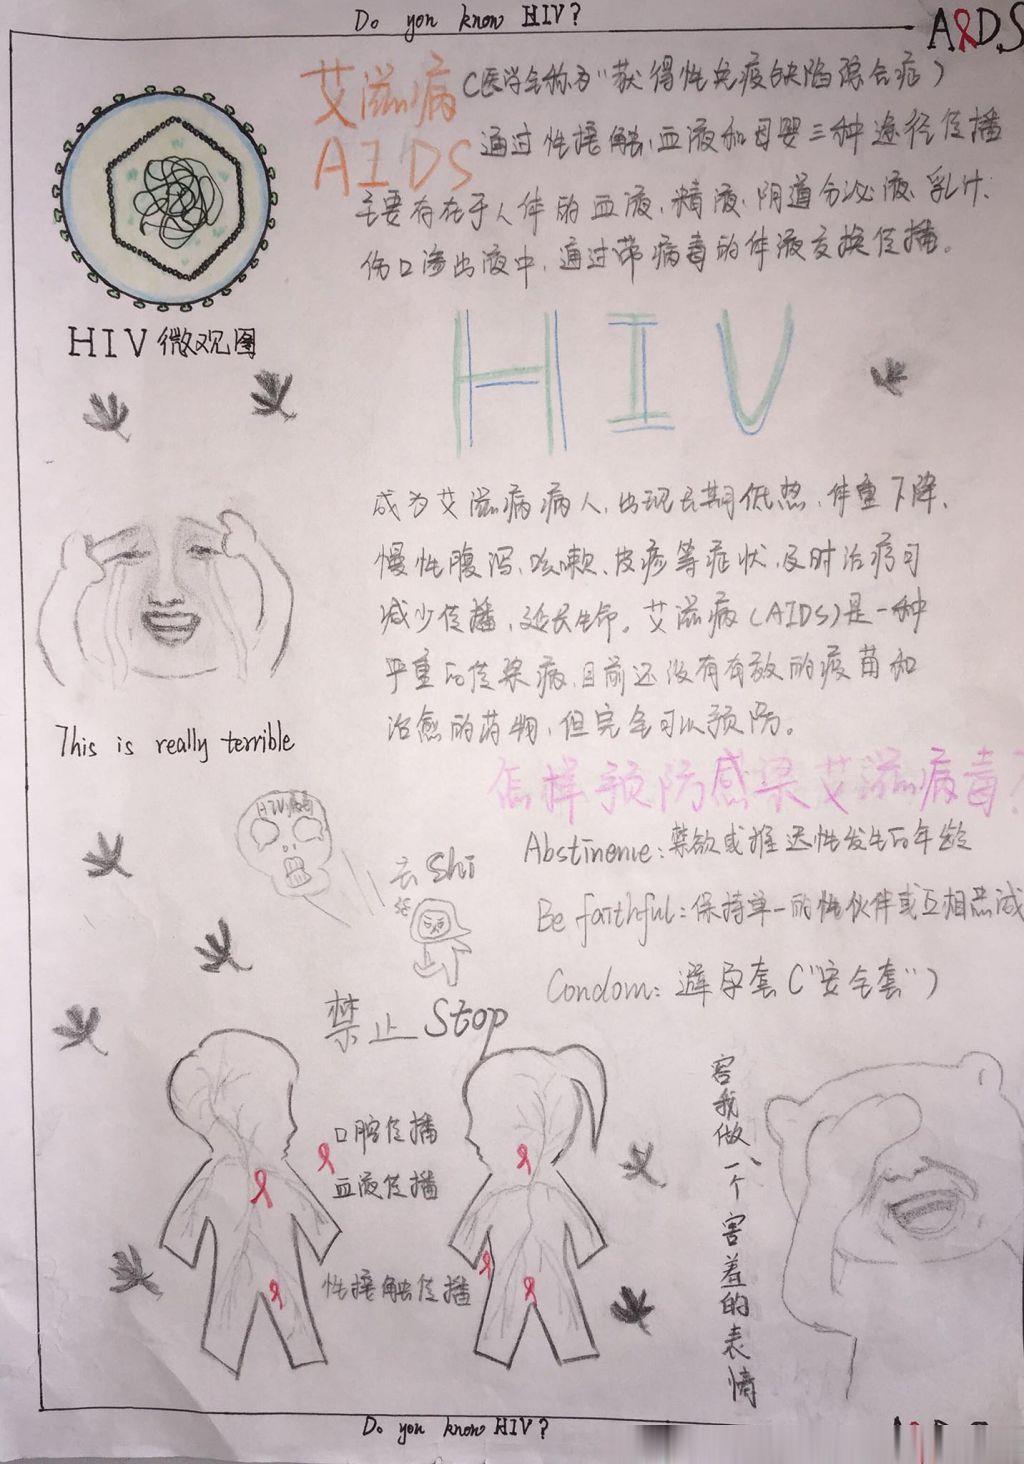 Do you know HIV?
AIDS
艾滋病
AIDS
(医学全称为"获得性免疫缺陷综合症)
通过性接触、血液和母婴三种途径传播
主要存在于人体的血液、精液、阴道分泌液、乳汁、
伤口渗出液中，通过带病毒的体液交换传播。
HIV微观图
HIV
成为艾滋病病人，出现长期低热、体重下降、
慢性腹泻、咳嗽、皮疹等症状，及时治疗可
减少传播，延长生命。艾滋病(AIDS)是一种
严重的传染病，目前还没有有效的疫苗和
治愈的药物，但完全可以预防。
This is really terrible
怎样预防感染艾滋病毒?
HIV病毒
去Shi
Abstinence:禁欲或推迟性发生的年龄
Be faithful:保持单一的性伙伴或互相忠诚
Condom:避孕套("安全套")
禁止 Stop
口腔传播
血液传播
性接触传播
容我做一个害羞的表情
Do you know HIV?